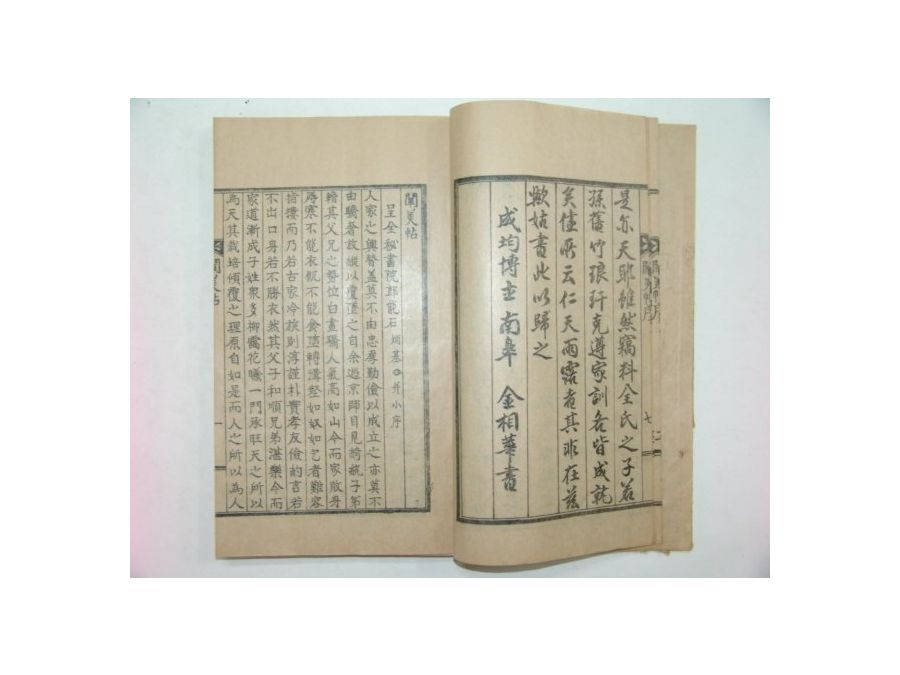 是亦天歟雖然竊料全氏之子若
孫舊竹琅玕克遵家訓各皆成就
矣僅所云仁天雨露者其非在茲
歟姑書此以歸之
成均博士南皐 金相華書
闡美帖
呈全秘書院郎龍石 炳基 并小序
人家之興替盖莫不由忠孝勤儉以成立之亦莫不
由驕奢放縱以覆墜之自余遊京師目見 子第
藉其父兄之勢位白晝驕人氣高如山今而家敗身
辱寒不能衣飢不能食墮轉溝壑如奴如乞者難容
指摟而乃若古家冷族則淳謹朴實孝友儉約言若
不出口身若不勝衣然其父子和順兄弟湛樂今而
家道漸成子姓衆多柳露花曦一門承旺天之所以
爲天其栽培傾覆之理原自如是而人之所以爲人
七
一